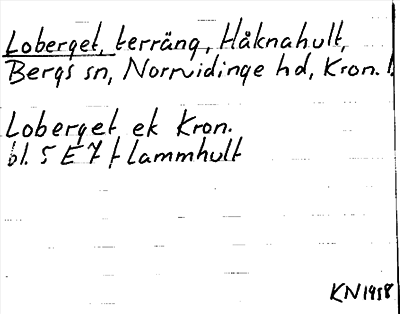 Loberget, terräng, Håknahult,
Bergs sn, Norrvidinge hd, Kron. l.
Loberget ek Kron.
bl. 5 E 7 f Lammhult
KN 1958